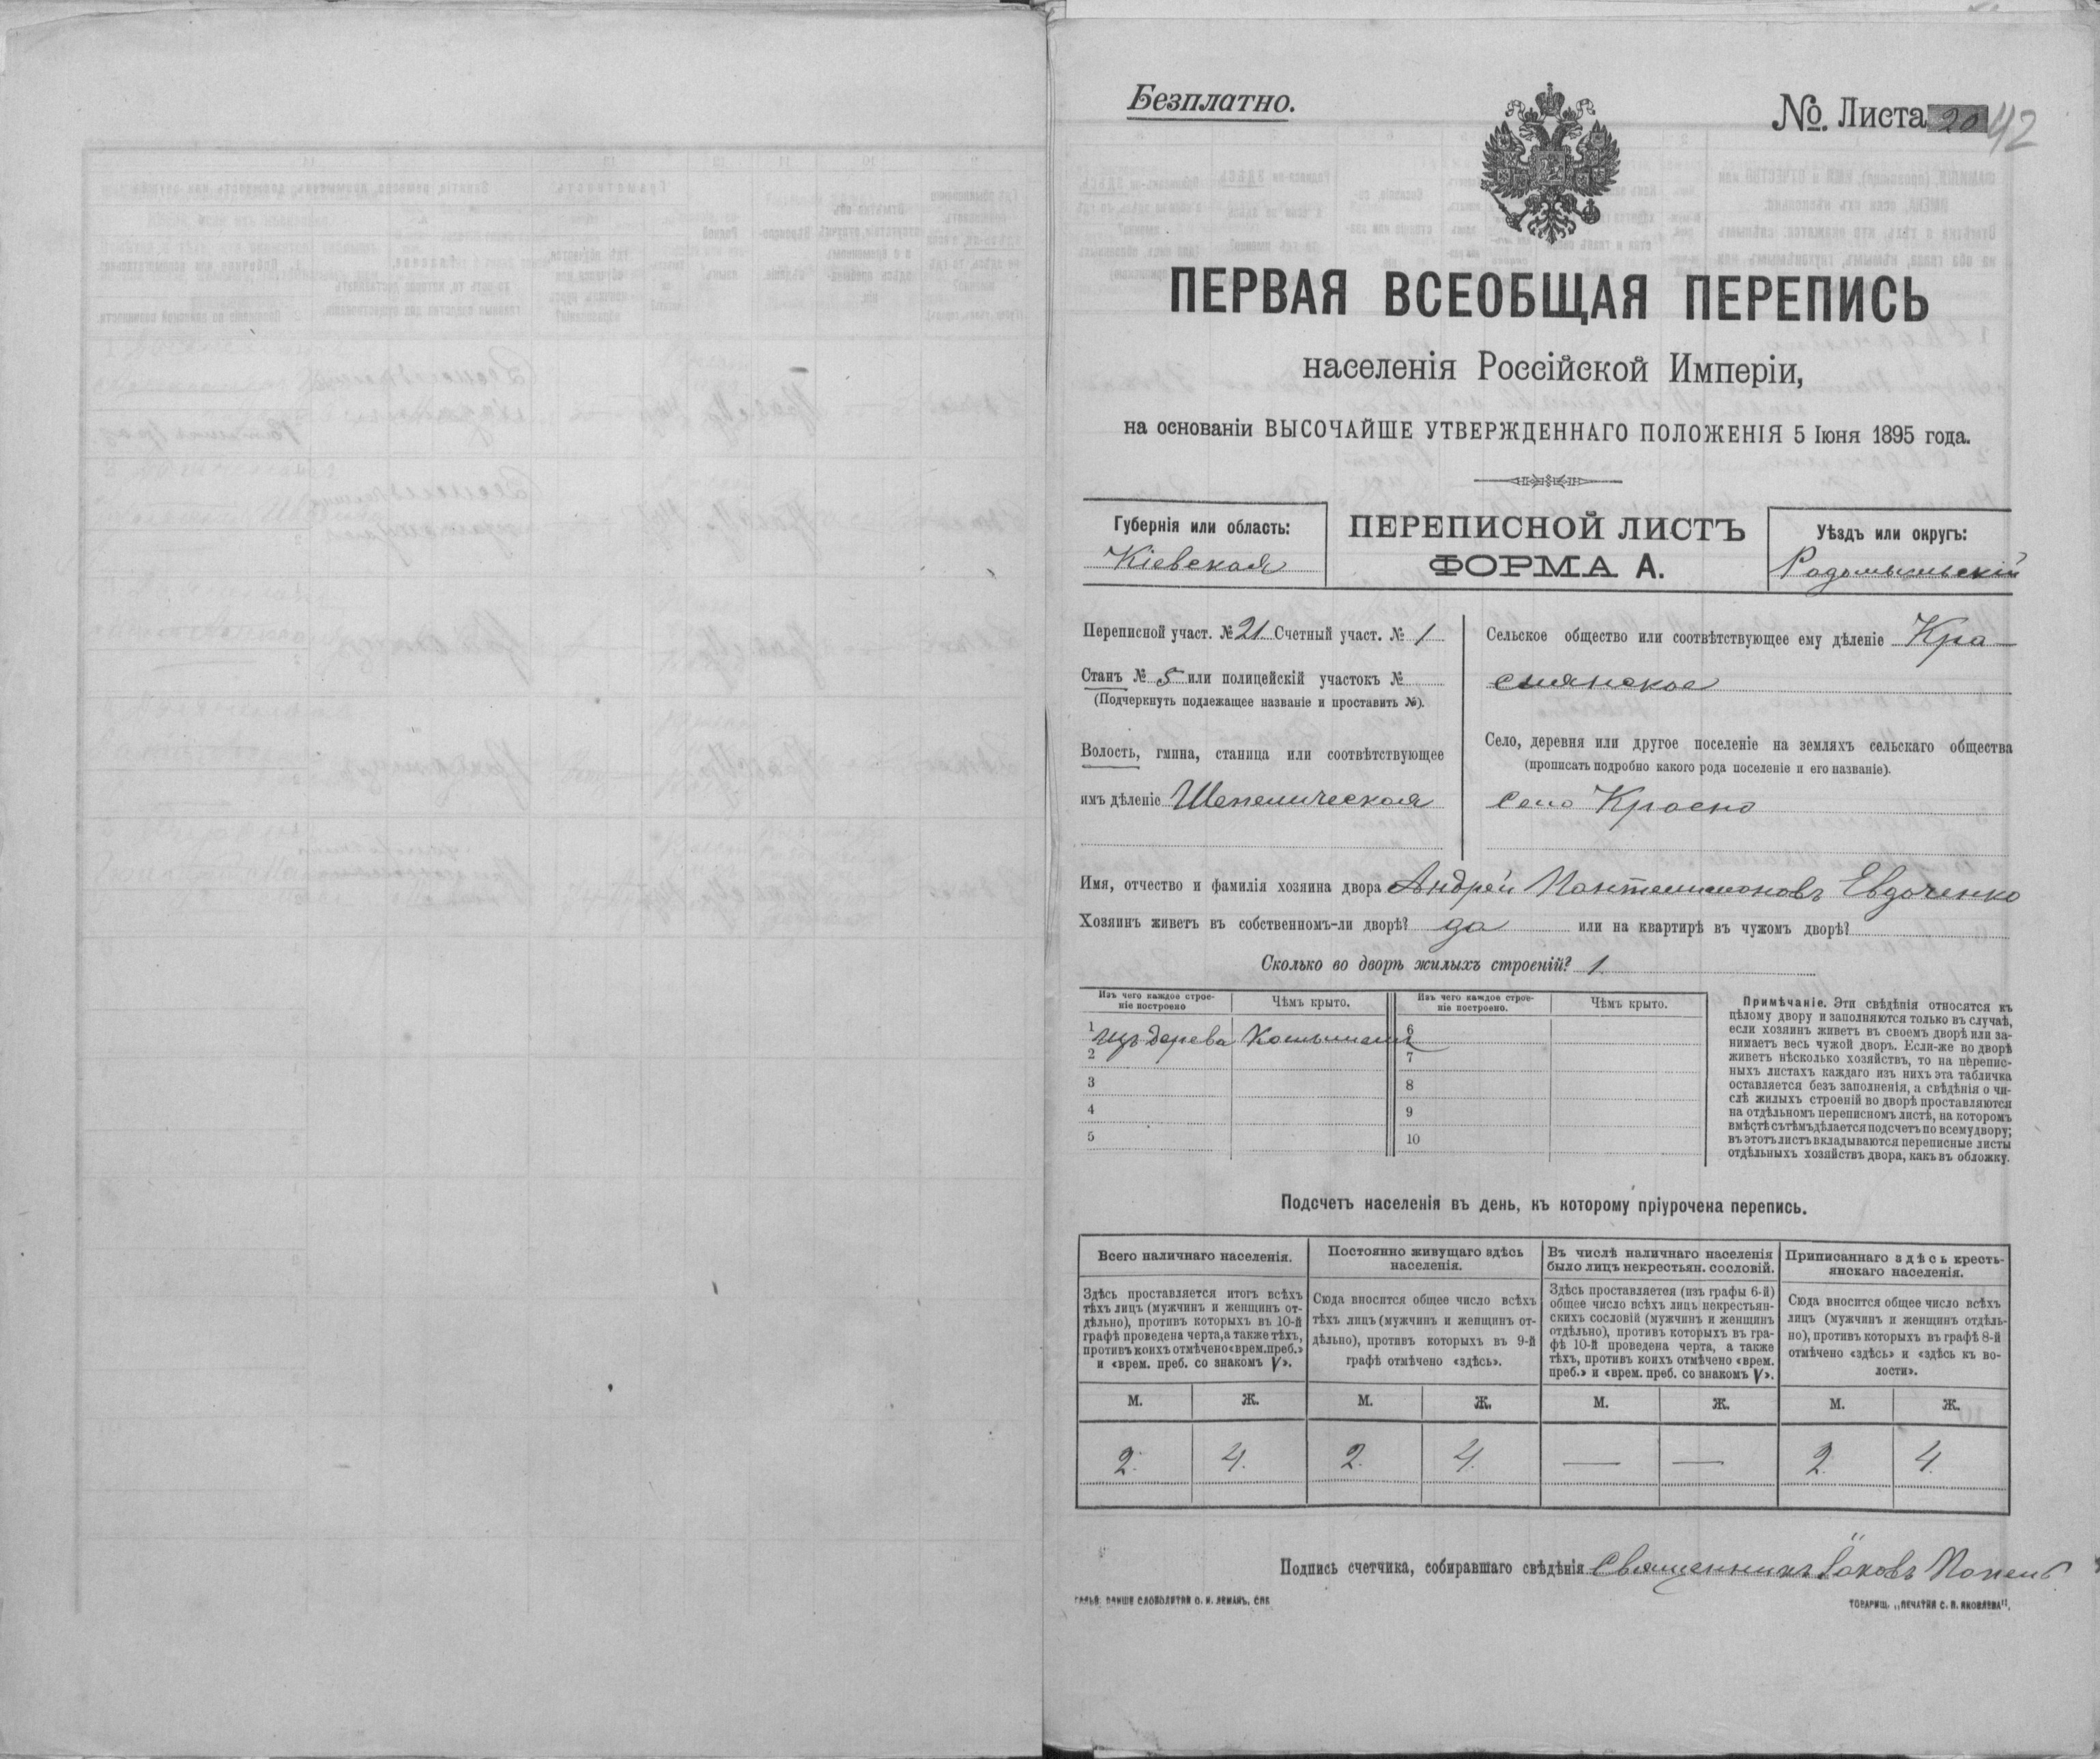 Безплатно.
№ Листа 20 42
ПЕРВАЯ ВСЕОБЩАЯ ПЕРЕПИСЬ
населенія Россійской Имперіи,
на основаніи ВЫСОЧАЙШЕ УТВЕРЖДЕННАГО ПОЛОЖЕНІЯ 5 Іюня 1895 года.
Губернія или область:
Кіевская
ПЕРЕПИСНОЙ ЛИСТЪ
ФОРМА А.
Уѣздъ или округъ:
Радомысльскій
Переписной участ. № 21 Счетный участ. № 1
Станъ № 5 или полицейскій участокъ №
(Подчеркнуть подлежащее названіе и проставить №).
Волость, гмина, станица или соотвѣтствующее
имъ дѣленіе Шепеличская
Сельское общество или соотвѣтствующее ему дѣленіе Кра
снянское
Село, деревня или другое поселеніе на земляхъ сельскаго общества
(прописать подробно какого рода поселеніе и его названіе).
Село Красно
Имя, отчество и фамилія хозяина двора Андрей Пантелимоновъ Евдоченко
Хозяинъ живетъ въ собственномъ-ли дворѣ? да или на квартирѣ въ чужомъ дворѣ?
Сколько во дворѣ жилыхъ строеній? 1.
Изъ чего каждое строе-
ніе построено
Чѣмъ крыто.
Изъ чего каждое строе-
ніе построено.
Чѣмъ крыто.
1 Изъ дерева
6
2
7
3
8
4
9
5
10
Примѣчаніе. Эти свѣдѣнія относятся къ
цѣлому двору и заполняются только въ случаѣ,
если хозяинъ живетъ въ своемъ дворѣ или за-
нимаетъ весь чужой дворъ. Если-же во дворѣ
живетъ нѣсколько хозяйствъ, то на перепис-
ныхъ листахъ каждаго изъ нихъ эта табличка
оставляется безъ заполненія, а свѣдѣнія о чи-
слѣ жилыхъ строеній во дворѣ проставляются
на отдѣльномъ переписномъ листѣ, на которомъ
вмѣстѣ съ тѣмъ дѣлается подсчетъ по всему двору;
въ этотъ листъ вкладываются переписные листы
отдѣльныхъ хозяйствъ двора, какъ въ обложку.
Подсчетъ населенія въ день, къ которому пріурочена перепись.
Всего наличнаго населенія.
Здѣсь проставляется итогъ всѣхъ
тѣхъ лицъ (мужчинъ и женщинъ от-
дѣльно), противъ которыхъ въ 10-й
графѣ проведена черта, а также тѣхъ,
противъ коихъ отмѣчено «врем. преб.»
и «врем. преб. со знакомъ V».
Постоянно живущаго здѣсь
населенія.
Сюда вносится общее число всѣхъ
тѣхъ лицъ (мужчинъ и женщинъ от-
дѣльно), противъ которыхъ въ 9-й
графѣ отмѣчено «здѣсь».
Въ числѣ наличнаго населенія
было лицъ некрестьян. сословій.
Здѣсь проставляется (изъ графы 6-й)
общее число всѣхъ лицъ некрестьян-
скихъ сословій (мужчинъ и женщинъ
отдѣльно), противъ которыхъ въ гра-
фѣ 10-й проведена черта, а также
тѣхъ, противъ коихъ отмѣчено «врем.
преб.» и «врем. преб. со знакомъ V».
Приписаннаго здѣсь кресть-
янскаго населенія.
Сюда вносится общее число всѣхъ
лицъ (мужчинъ и женщинъ отдѣль-
но), противъ которыхъ въ графѣ 8-й
отмѣчено «здѣсь» и «здѣсь къ во-
лости».
М. Ж. М. Ж. М. Ж. М. Ж.
2. 4. 2. 4. — — 2. 4.
Подпись счетчика, собиравшаго свѣдѣнія Священникъ Іаковъ
СЛОВОЛИТНИ О. И. ЛЕМАНЪ, СПБ
ТОВАРИЩ. „ПЕЧАТНЯ С. П. ЯКОВЛЕВА".